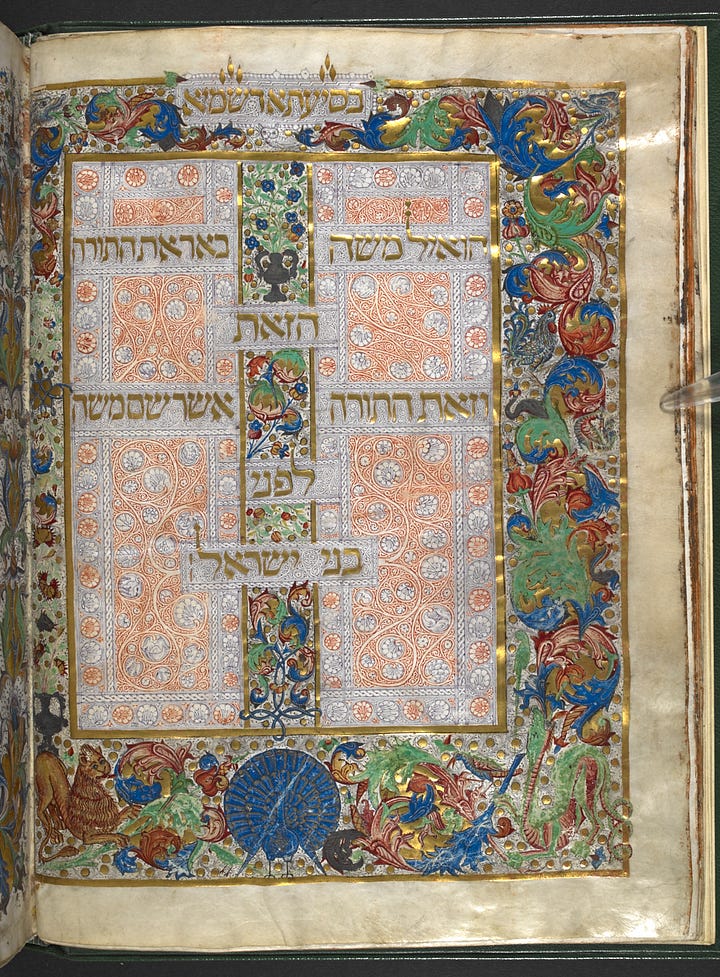 בסיעתא דשמיא
הואיל משה באר את התורה
הזאת
וזאת התורה אשר שם משה
לפני
בני ישראל: